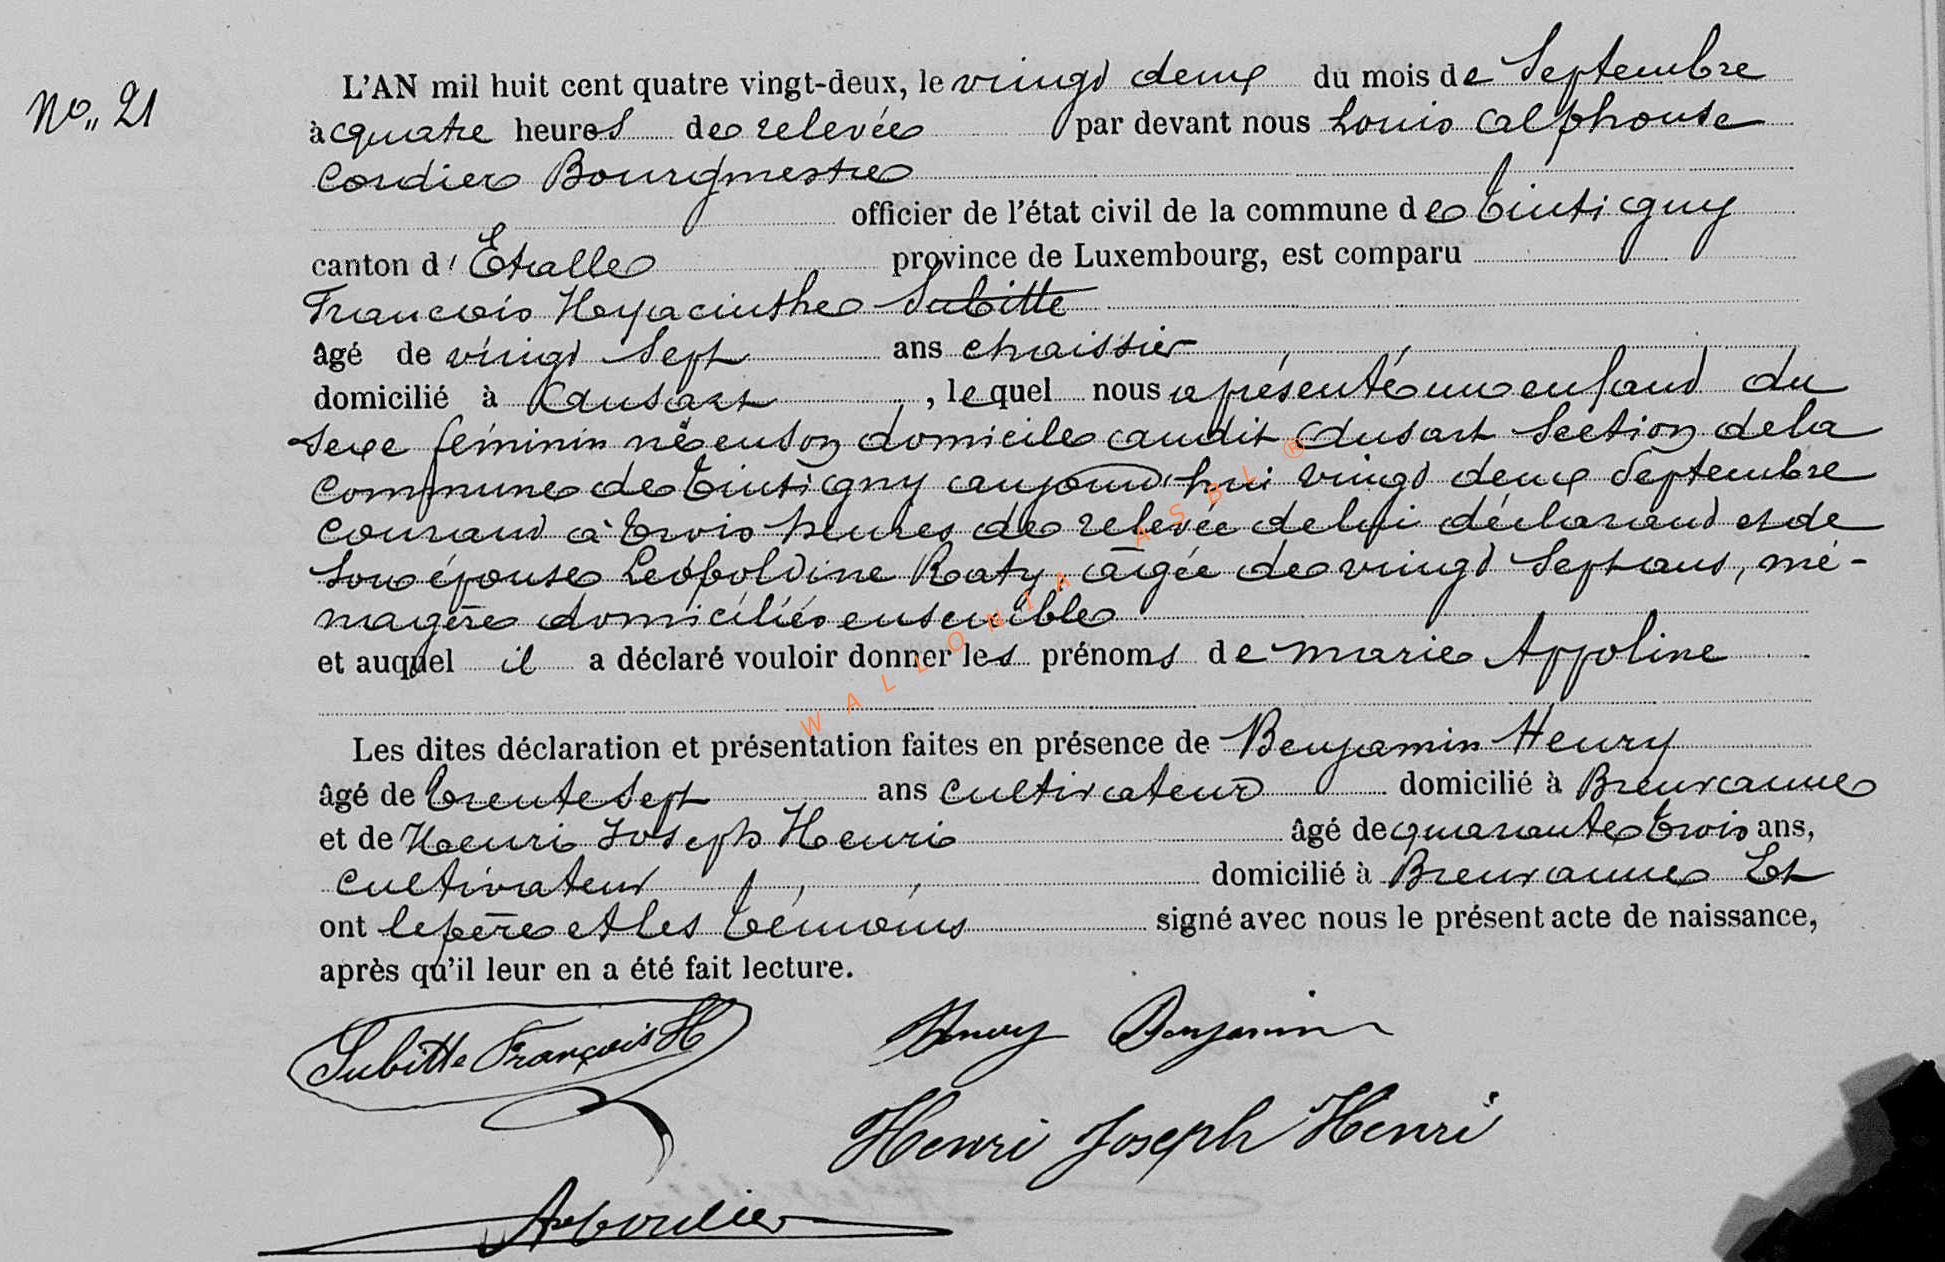 No,, 21
L'AN mil huit cent quatre vingt-deux, le vingt deux du mois de Septembre
à quatre heures de relevée par devant nous Louis Alphonse
Cordier Bourgmestre
officier de l'état civil de la commune de Tintigny
canton d'Etalle province de Luxembourg, est comparu
Francois Hyacinthe Subitte
âgé de vingt Sept ans chaissier
domicilié à Ansart, lequel nous a présenté un enfant du
Sexe féminin né en son domicile audit Ansart Section de la
Commune de Tintigny aujourd'hui vingt deux Septembre
Courant à trois heures de relevée de lui déclarant et de
Son épouse Léopoldine Raty, âgée de vingt Sept ans, mé-
nagère domiciliés ensemble
et auquel il a déclaré vouloir donner les prénoms de Marie Appoline
Les dites déclaration et présentation faites en présence de Benjamin Henry
âgé de trente Sept ans cultivateur domicilié à Breuvanne
et de Henri Joseph Henri âgé de quarante trois ans,
cultivateur domicilié à Breuvanne Et
ont le père et les témoins signé avec nous le présent acte de naissance,
après qu'il leur en a été fait lecture.
Subitte François H Henry Benjamin
Henri Joseph Henri
ACordier
WALLONIA ASBL ®